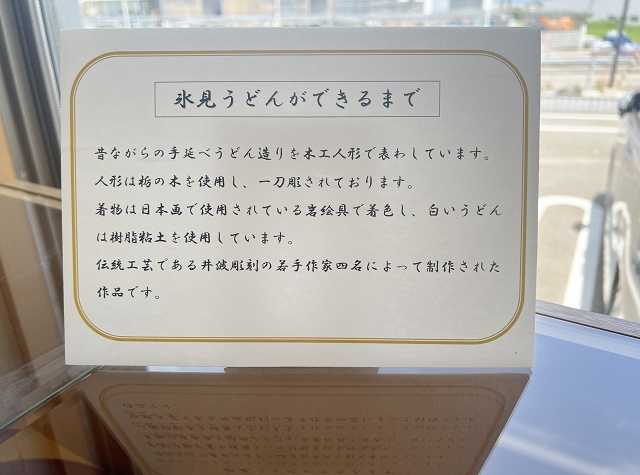 氷見うどんができるまで
昔ながらの手延べうどん造りを木工人形で表わしています。
人形は栃の木を使用し、一刀彫されております。
着物は日本画で使用されている岩絵具で着色し、白いうどん
は樹脂粘土を使用しています。
伝統工芸である井波彫刻の若手作家四名によって制作された
作品です。